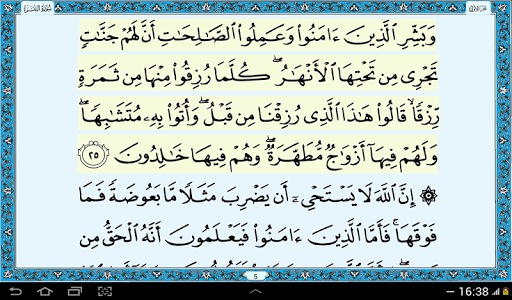 سورة البقرة
الجزء الأول
وَبَشِّرِ الَّذِينَ ءَامَنُوا وَعَمِلُوا الصَّالِحَاتِ أَنَّ لَهُمْ جَنَّاتٍ
تَجْرِى مِن تَحْتِهَا الْأَنْهَارُ ۖ كُلَّمَا رُزِقُوا مِنْهَا مِن ثَمَرَةٍ
رِّزْقًا ۙ قَالُوا هَٰذَا الَّذِى رُزِقْنَا مِن قَبْلُ ۖ وَأُتُوا بِهِ مُتَشَابِهًا ۖ
وَلَهُمْ فِيهَآ أَزْوَاجٌ مُّطَهَّرَةٌ ۖ وَهُمْ فِيهَا خَالِدُونَ ٢٥
۞ إِنَّ اللَّهَ لَا يَسْتَحْىِۦٓ أَن يَضْرِبَ مَثَلًا مَّا بَعُوضَةً فَمَا
فَوْقَهَا ۚ فَأَمَّا الَّذِينَ ءَامَنُوا فَيَعْلَمُونَ أَنَّهُ الْحَقُّ مِن
5
16:38